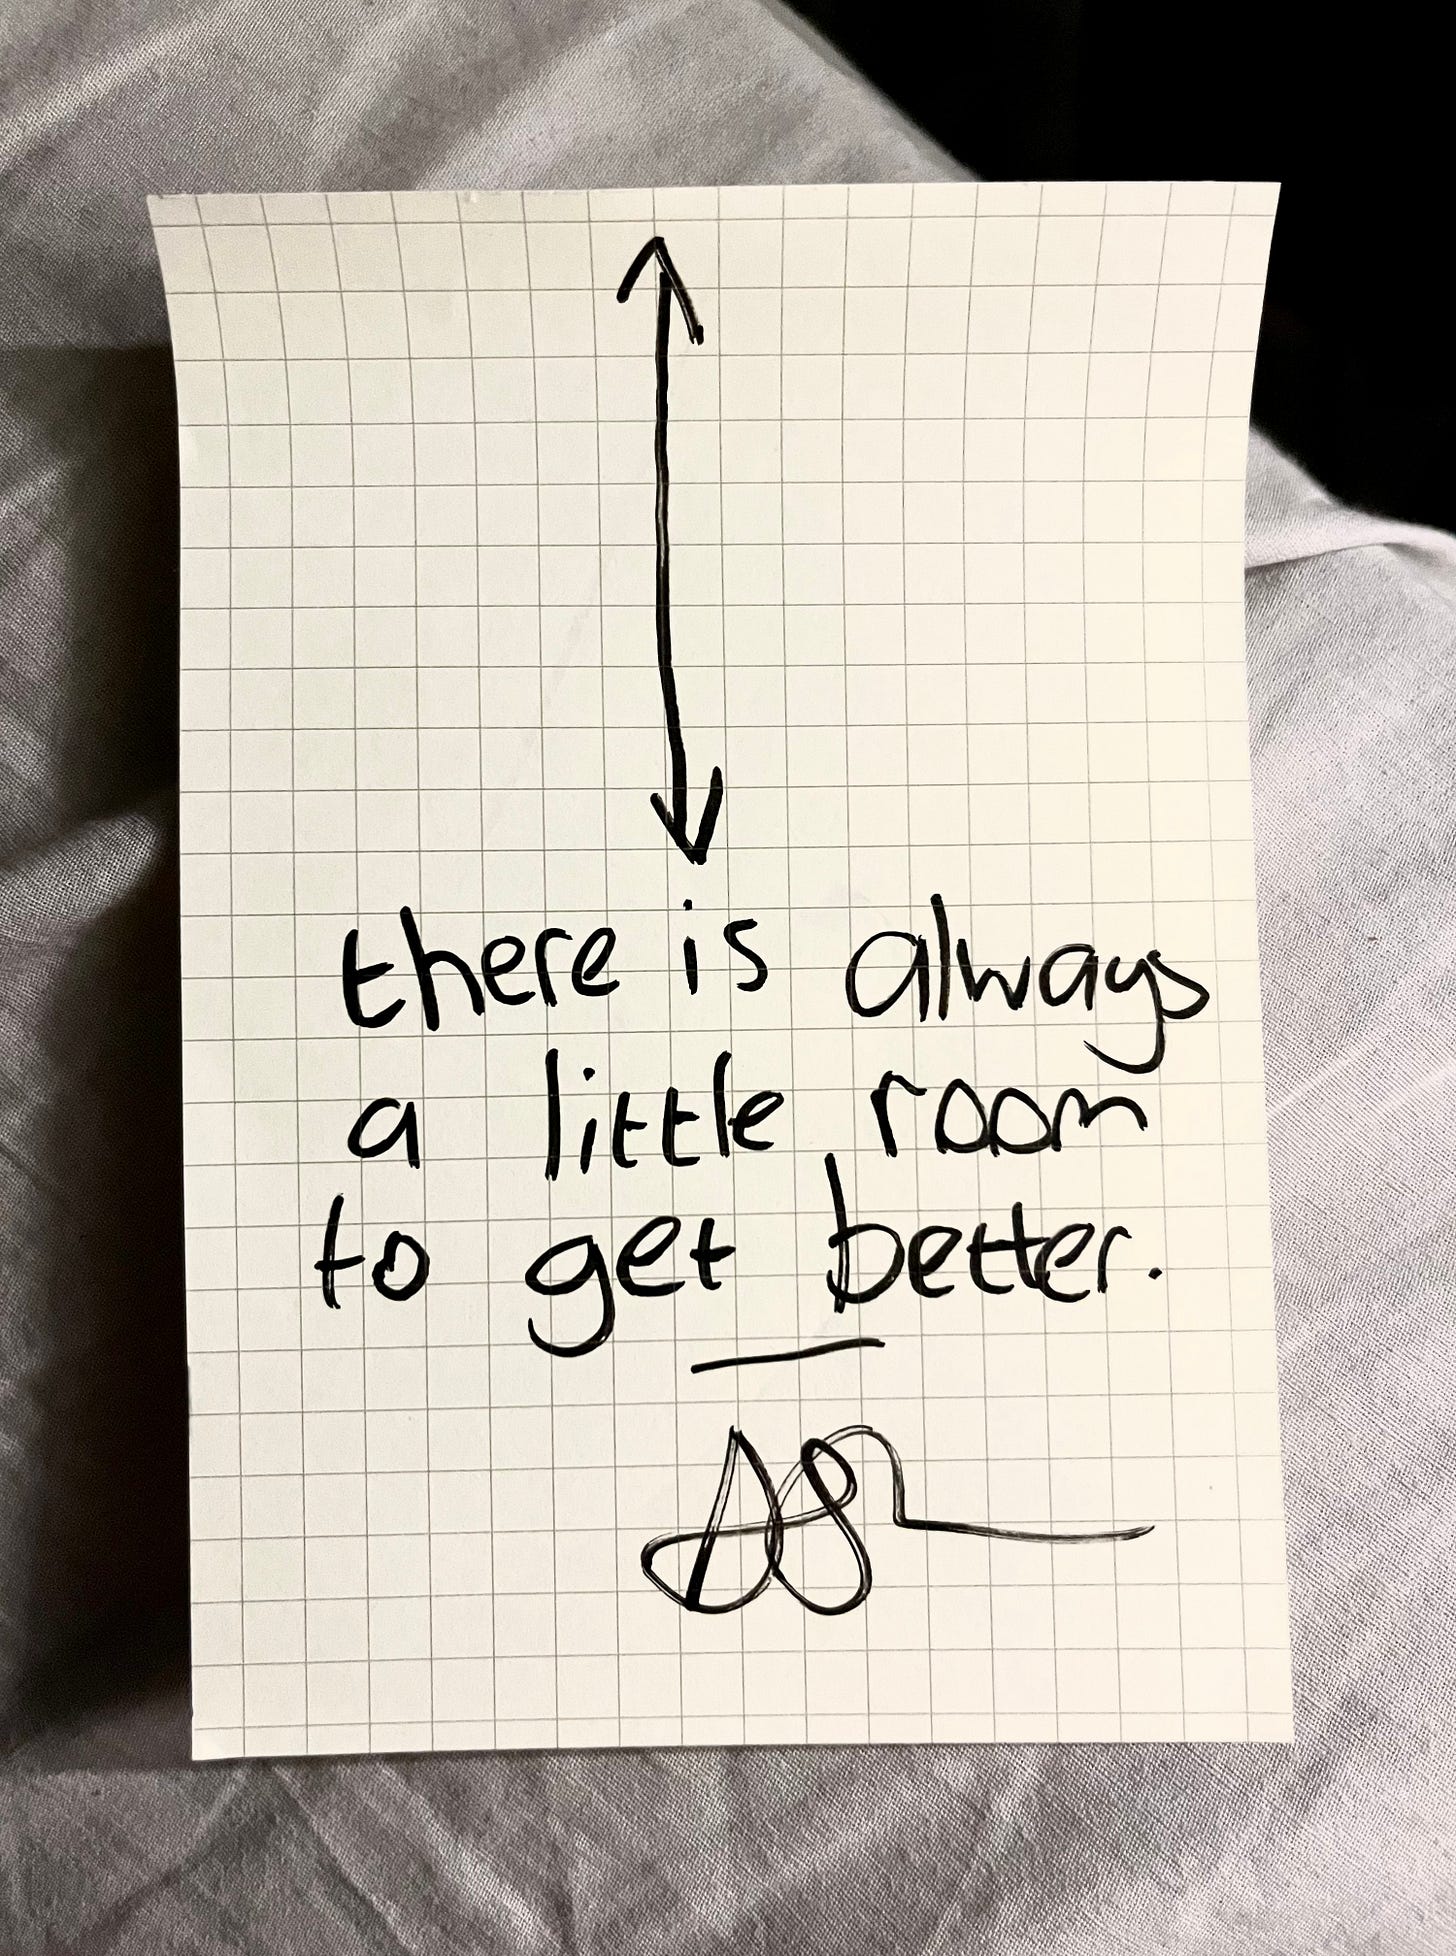 there is always
a little room
to get better.